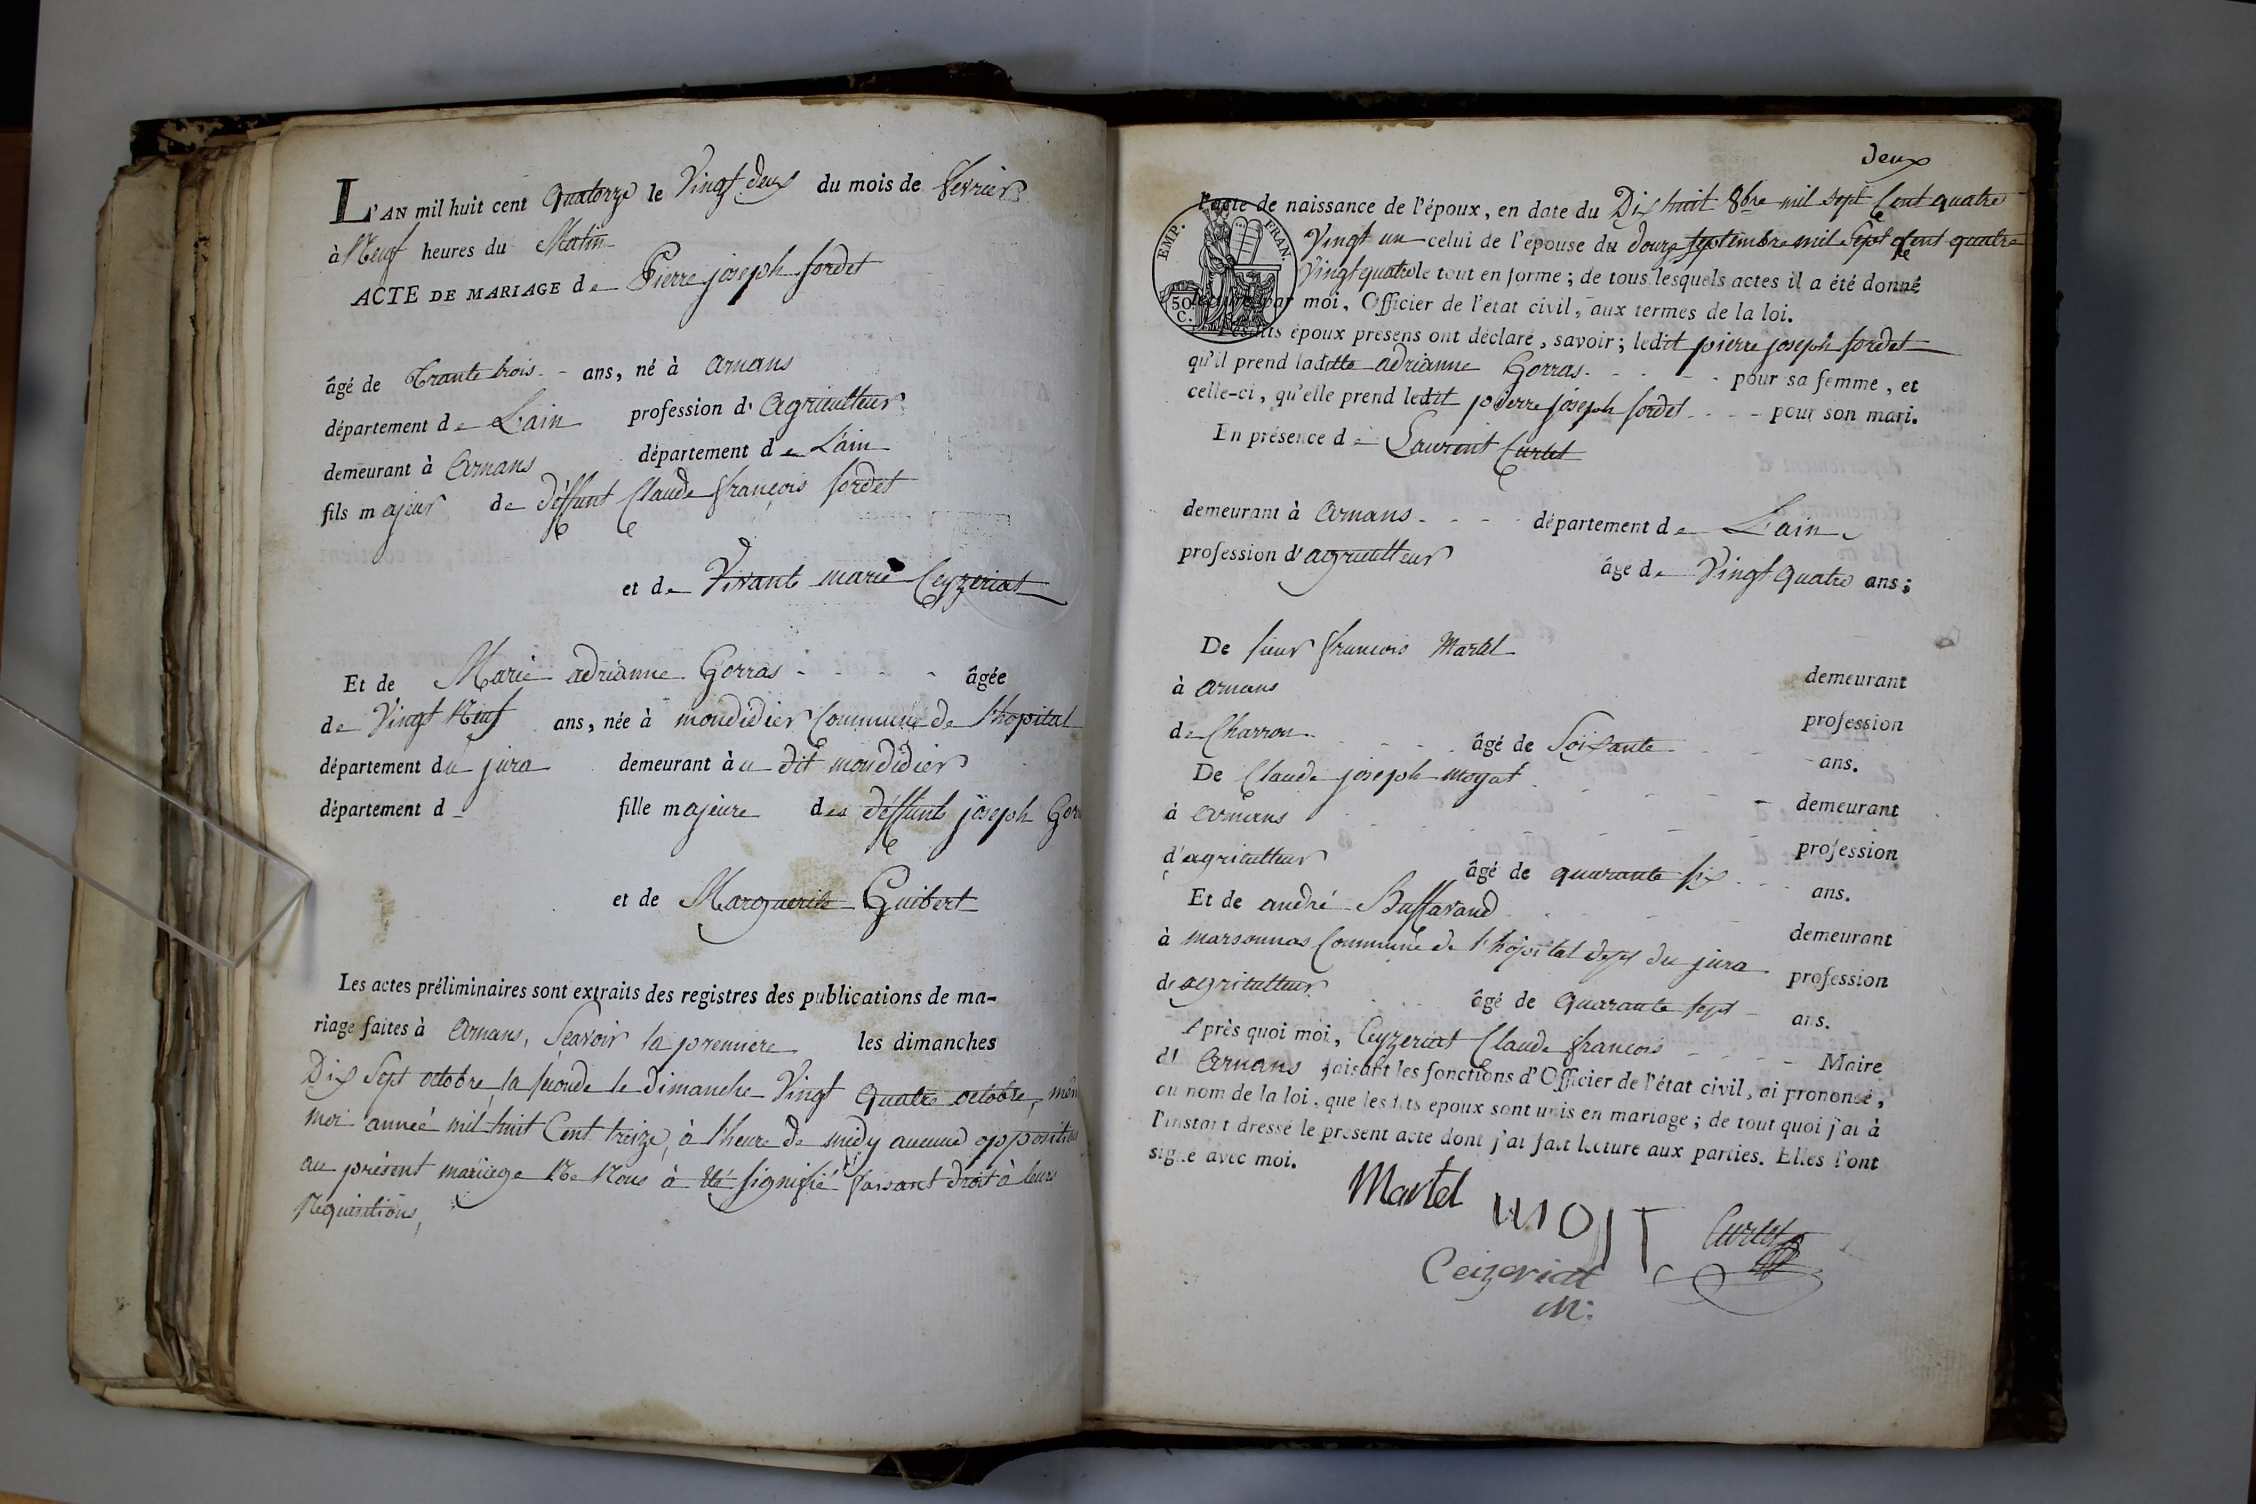 L'AN mil huit cent quatorze le Vingt deux du mois de fevrier
à Neuf heures du Matin
ACTE DE MARIAGE de Pierre joseph fordet
âgé de Trante trois - ans, né à arnans
département de Lain profession d'agriculteur
demeurant à arnans département de Lain
fils majeur de deffunt Claude françois fordet
et de Vivante marie Ceyzeriat
Et de Marie adrianne Gorras - - - - âgée
de Vingt Neuf ans, née à moudidier Commune de l'hopital
département du jura demeurant au dit moudidier
département d- fille majeure des deffunts joseph
et de Marguerite Guibert
Les actes préliminaires sont extraits des registres des publications de ma-
riage faites à arnans, Scavoir la premiere les dimanches
Dix Sept octobre, la seconde le dimanche Vingt quatre octobre,
moi année mil huit Cent treize, à l'heure de midy aucune opposition
au présent mariage Ne Nous à été signifié faisant droit à leurs
Requisitions,
deux
l'acte de naissance de l'époux, en date du Dix huit 8bre mil sept Cent quatre
Vingt un celui de l'épouse du douze septembre mil Sept Cent quatre
Vingt quatre le tout en forme; de tous lesquels actes il a été donné
lecture par moi, Officier de l'état civil, aux termes de la loi.
Lesdits époux présens ont déclaré, savoir; ledit pierre joseph fordet
qu'il prend ladite adrianne Gorras - - - - pour sa femme, et
celle-ci, qu'elle prend ledit pierre joseph fordet - - - pour son mari.
En présence de Laurent Curlet
demeurant à arnans - - - département de Lain
profession d'agriculteur âgé de Vingt quatre ans;
De sieur francois Martel demeurant
à arnans profession
de Charron - - - âgé de Soixante - - ans.
De Claude joseph moyat - - - demeurant
à arnans - - - profession
d'agriculteur âgé de quarante six - - - ans.
Et de andré Buffavand - - - demeurant
à marsonnas Commune de l'hopital dept du jura profession
de agriculteur âgé de quarante sept - ans.
Après quoi moi, Ceyzeriat Claude francois - - - Maire
d'arnans faisant les fonctions d'Officier de l'état civil, ai prononcé,
au nom de la loi, que lesdits époux sont unis en mariage; de tout quoi j'ai à
l'instant dressé le présent acte dont j'ai fait lecture aux parties. Elles l'ont
signé avec moi.
EMP. FRAN.
50 C.
Martel Curlet
Ceizeriat
M: